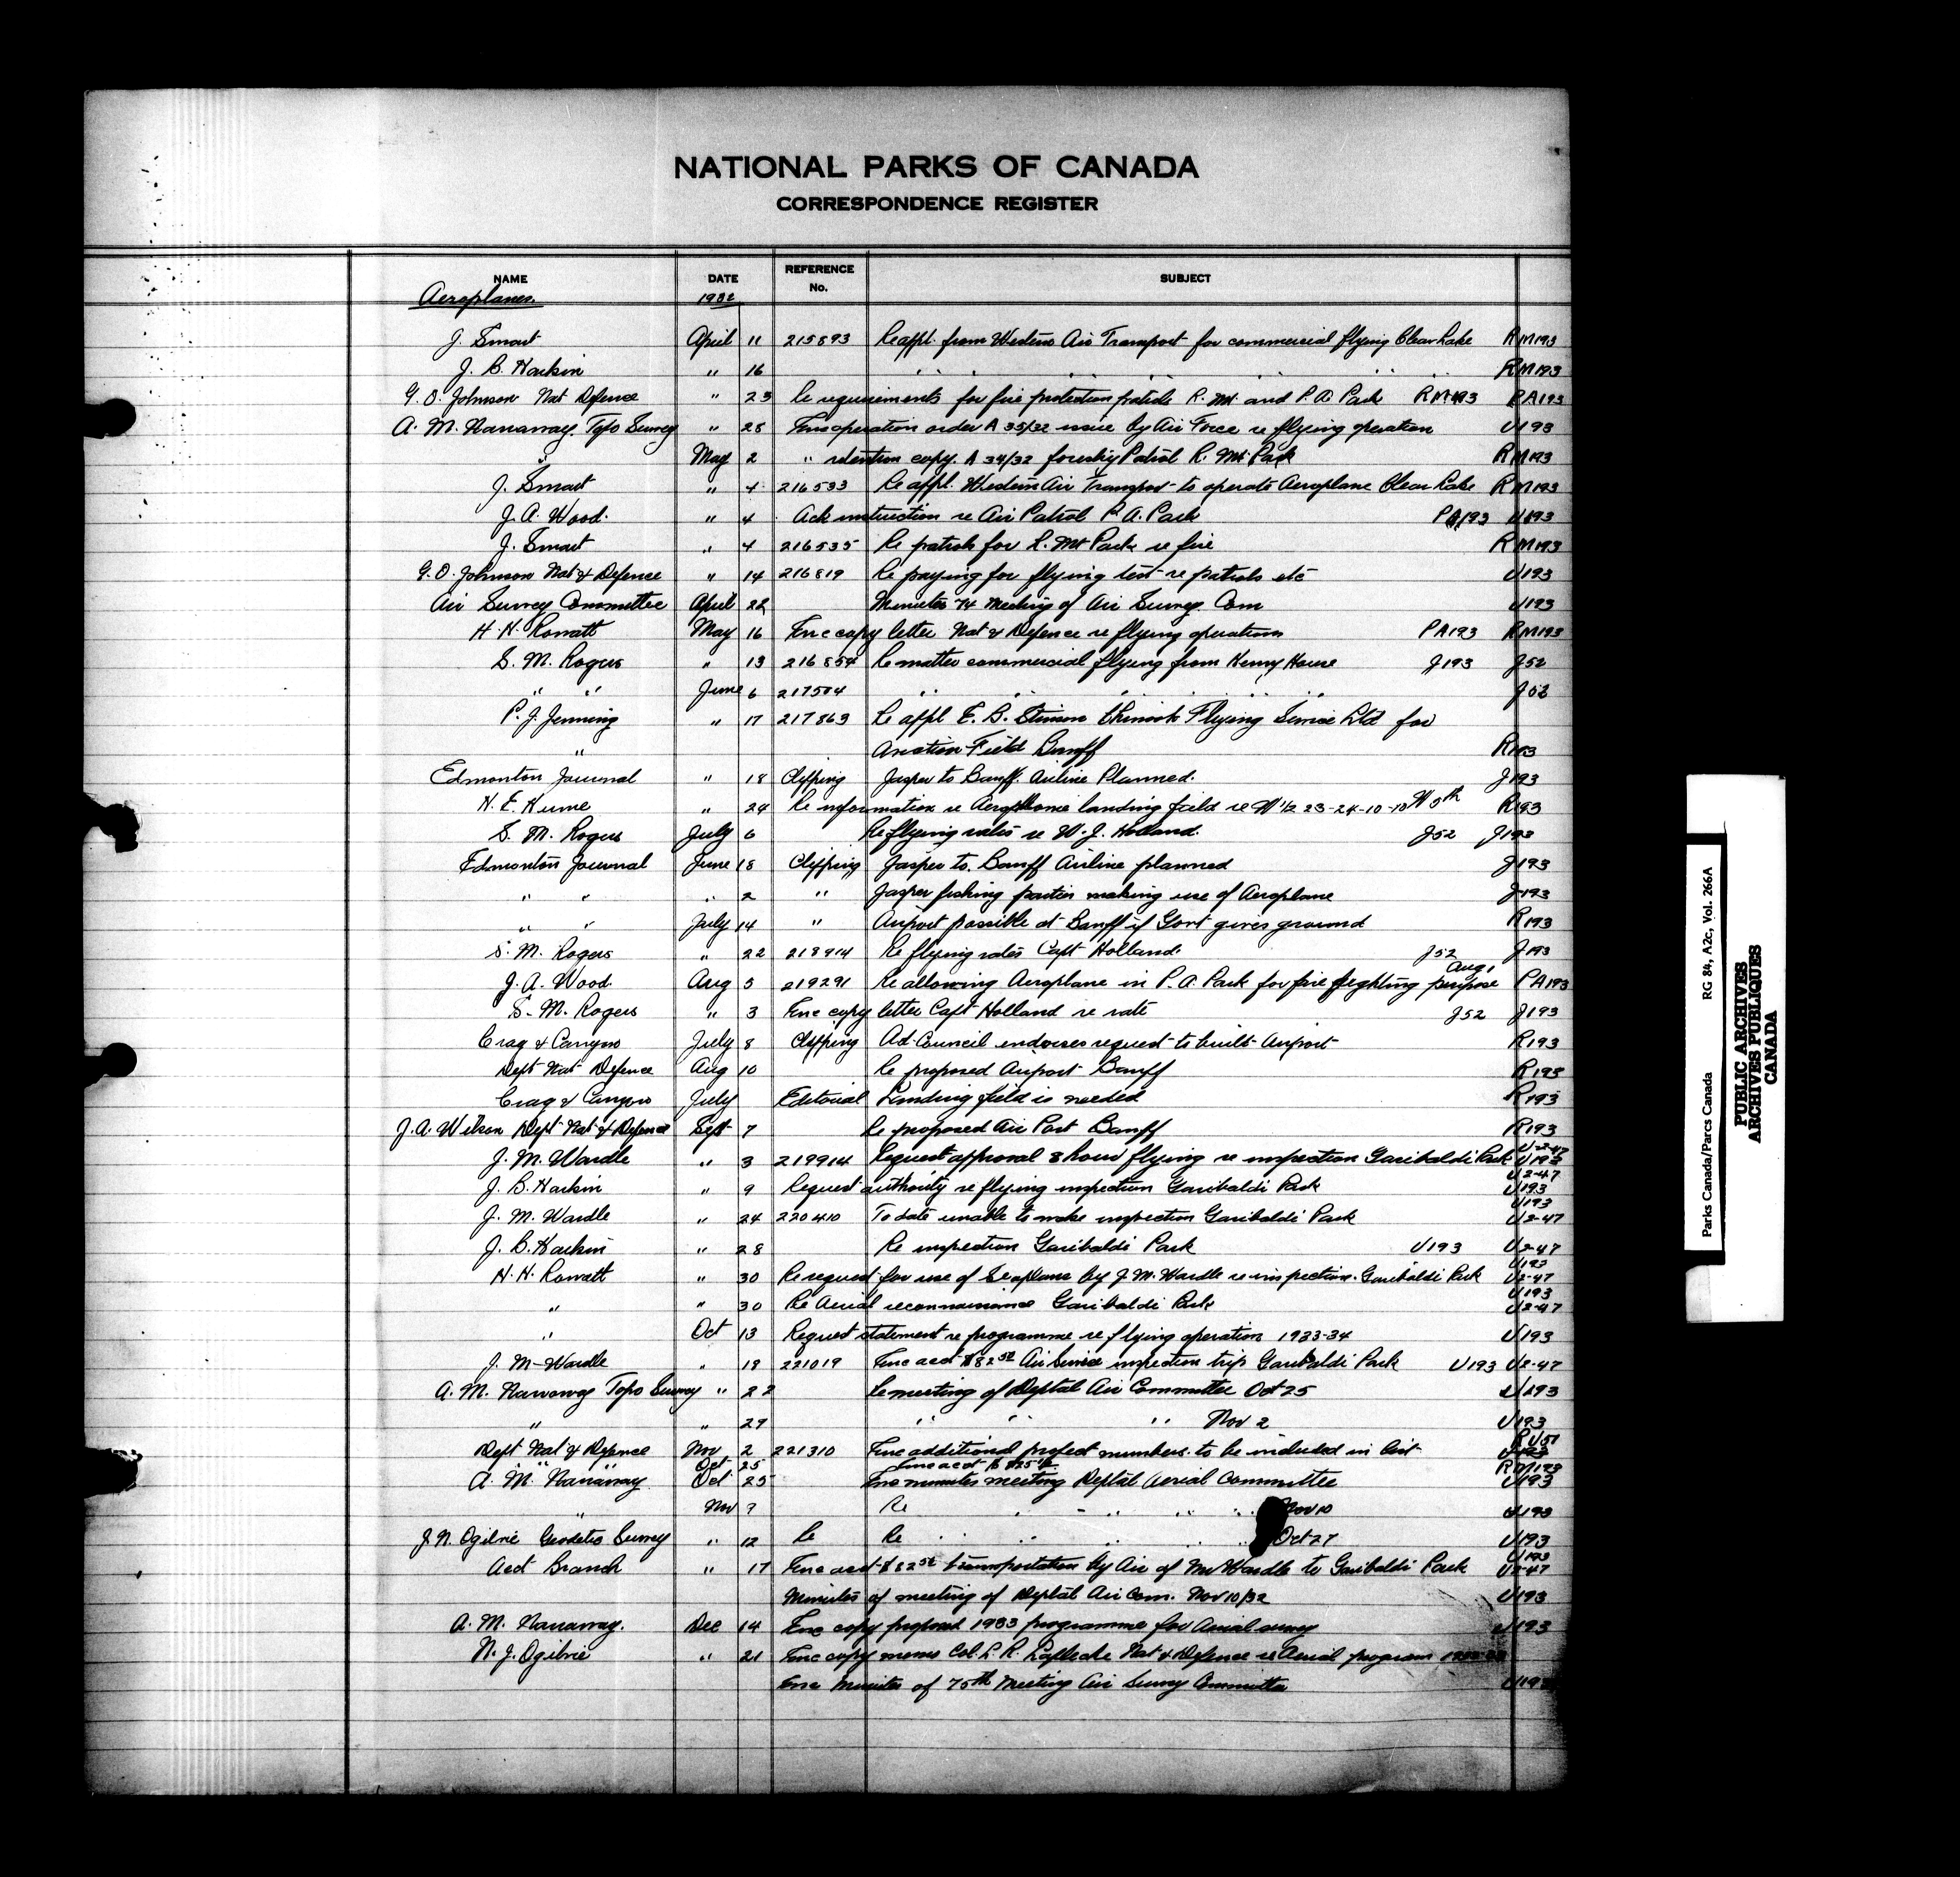 NATIONAL PARKS OF CANADA
CORRESPONDENCE REGISTER
NAME DATE REFERENCE No. SUBJECT
Aeroplanes. 1932
J. Smart April 11 215893 Re appl. from Western Air Transport for commercial flying Clear Lake RM193
J. B. Harkin " 16 " " " " " " RM193
G. O. Johnson Nat Defence " 23 Re requirements for fire protection patrols R. Mt. and P. A. Park RM193 PA193
A. M. Narraway. Topo Survey " 28 Enc operation order A 35/32 issue by Air Force re flying operation U193
" May 2 " retention copy. A 34/32 forestry Patrol R. Mt. Park RM193
J. Smart " 4 216533 Re appl. Western Air Transport to operate Aeroplane Clear Lake RM193
J. A. Wood. " 4 Ack instruction re Air Patrol P. A. Park PA193 U193
J. Smart " 4 216535 Re patrols for R. Mt Park re fire RM193
G. O. Johnson Nat'l Defence " 14 216819 Re paying for flying test re patrols etc U193
Air Survey Committee April 22 Minutes 74 Meeting of Air Survey Com U193
H. H. Rowatt May 16 Enc copy letter Nat'l Defence re flying operations PA193 RM193
S. M. Rogers " 13 216854 Re matter commercial flying from Henry House J193 J52
" " June 6 217504 " " " " " " J52
P. J. Jennings " 17 217863 Re appl E. B. Stinson Chinook Flying Service Ltd for
" Aviation Field Banff R193
Edmonton Journal " 18 Clipping Jasper to Banff. Airline Planned. J193
H. E. Hume " 24 Re information re Aerodrome landing field re W 1/2 23-24-10-10 W 5th R193
S. M. Rogers July 6 Re flying rates re W. J. Holland. J52 J193
Edmonton Journal June 18 Clipping Jasper to. Banff Airline planned J193
" " " 2 " Jasper fishing parties making use of Aeroplane J193
" " July 14 " Airport possible at Banff if Govt gives ground R193
S. M. Rogers " 22 218914 Re flying rates Capt Holland. J52 J193
J. A. Wood Aug 5 219291 Re allowing Aeroplane in P. A. Park for fire fighting purpose Aug 1 PA193
S. M. Rogers " 3 Enc copy letter Capt Holland re rate J52 J193
Crag & Canyon July 8 Clipping Ad. Council endorses request to built Airport R193
Dept Nat Defence Aug 10 Re proposed Airport Banff R193
Crag & Canyon July Editorial Landing field is needed R193
J. A. Wilson Dept Nat'l Defence Sept 7 Re proposed Air Port Banff R193
J. M. Wardle " 3 219914 Request approval 8 hours flying re inspection Garibaldi Park U2-47 U193
J. B. Harkin " 9 Request authority re flying inspection Garibaldi Park U2-47 U193
J. M. Wardle " 24 220410 To date unable to make inspection Garibaldi Park U193 U2-47
J. B. Harkin " 28 Re inspection Garibaldi Park U193 U2-47
H. H. Rowatt " 30 Re request for use of Seaplane by J. M. Wardle re inspection. Garibaldi Park U193 U2-47
" " 30 Re Aerial reconnaissance Garibaldi Park U193 U2-47
" Oct 13 Request statement re programme re flying operation 1933-34 U193
J. M. Wardle " 18 221019 Enc acct $82.50 Air Service inspection trip Garibaldi Park U193 U2-47
A. M. Narraway Topo Survey " 22 Re meeting of Deptal Air Committee Oct 25 U193
" " 29 " " " Nov 2 U193
Dept Nat'l Defence Nov 2 221310 Enc additional project numbers. to be included in list RU51 U193
" " Oct 25 Enc acct RM193
A. M. Narraway Oct 25 Enc minutes meeting Deptal Aerial Committee U193
" Nov 9 Re " " " " Nov 10 U193
J. N. Ogilvie Geodetic Survey " 12 Re Re " " " " Oct 27 U193
Acct Branch " 17 Enc acct $82.50 transportation by Air of Mr Wardle to Garibaldi Park U193 U2-47
Minutes of meeting of Deptal Air Com. Nov 10/32 U193
A. M. Narraway. Dec 14 Enc copy proposed 1933 programme for Aerial survey U193
N. J. Ogilvie " 21 Enc copy memo Col. L. R. Lafleche Nat'l Defence re Aerial program
Enc Minutes of 75th Meeting Air Survey Committee U193
Parks Canada/Parcs Canada RG 84, A2c, Vol. 266A
PUBLIC ARCHIVES
ARCHIVES PUBLIQUES
CANADA